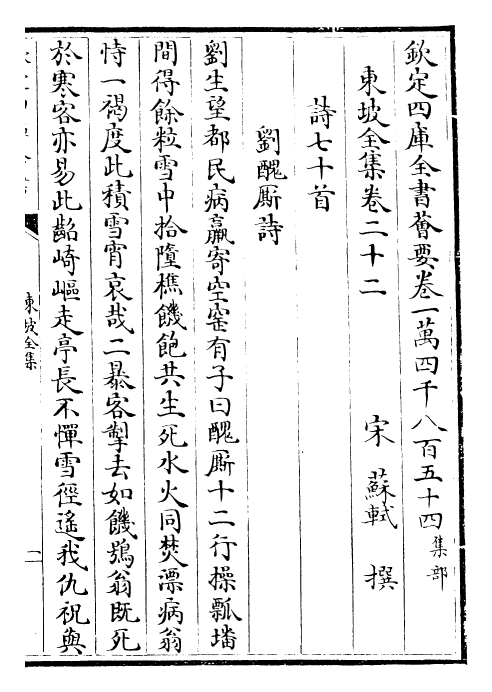 欽定四庫全書薈要卷一萬四千八百五十四集部
東坡全集卷二十二
宋 蘇軾 撰
詩七十首
劉醜厮詩
劉生望都民病羸寄空窑有子曰醜厮十二行操瓢墦
間得餘粒雪中拾墮樵饑飽共生死水火同焚漂病翁
恃一褐度此積雪宵哀哉二暴客掣去如饑鴞翁既死
於寒客亦易此齠崎嶇走亭長不憚雪徑遙我仇祝與
東坡全集
一